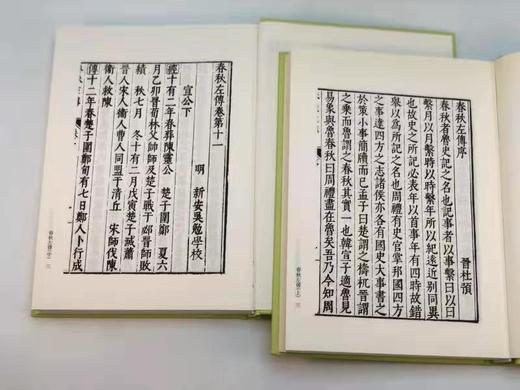 春秋左傳序
晉杜預
春秋者魯史記之名也記事者以事繫日以日
繫月以月繫時以時繫年所以紀遠近別同異
也故史之所記必表年以首事年有四時故錯
舉以為所記之名也周禮有史官掌邦國四方
之事達四方之志諸侯亦各有國史大事書之
於策小事簡牘而已孟子曰楚謂之檮杌晉謂
之乘而魯謂之春秋其實一也韓宣子適魯見
易象與魯春秋曰周禮盡在魯矣吾乃今知周
春秋左傳(上)
春秋左傳卷第十一
明 新安吳勉學校
宣公下
經十有二年春葬陳靈公 楚子圍鄭 夏六
月乙卯晉荀林父帥師及楚子戰于邲晉師敗
績 秋七月 冬十有二月戊寅楚子滅蕭
晉人宋人衞人曹人同盟于清丘 宋師伐陳
衞人救陳
傳十二年春楚子圍鄭旬有七日鄭人卜行成
春秋左傳(中)